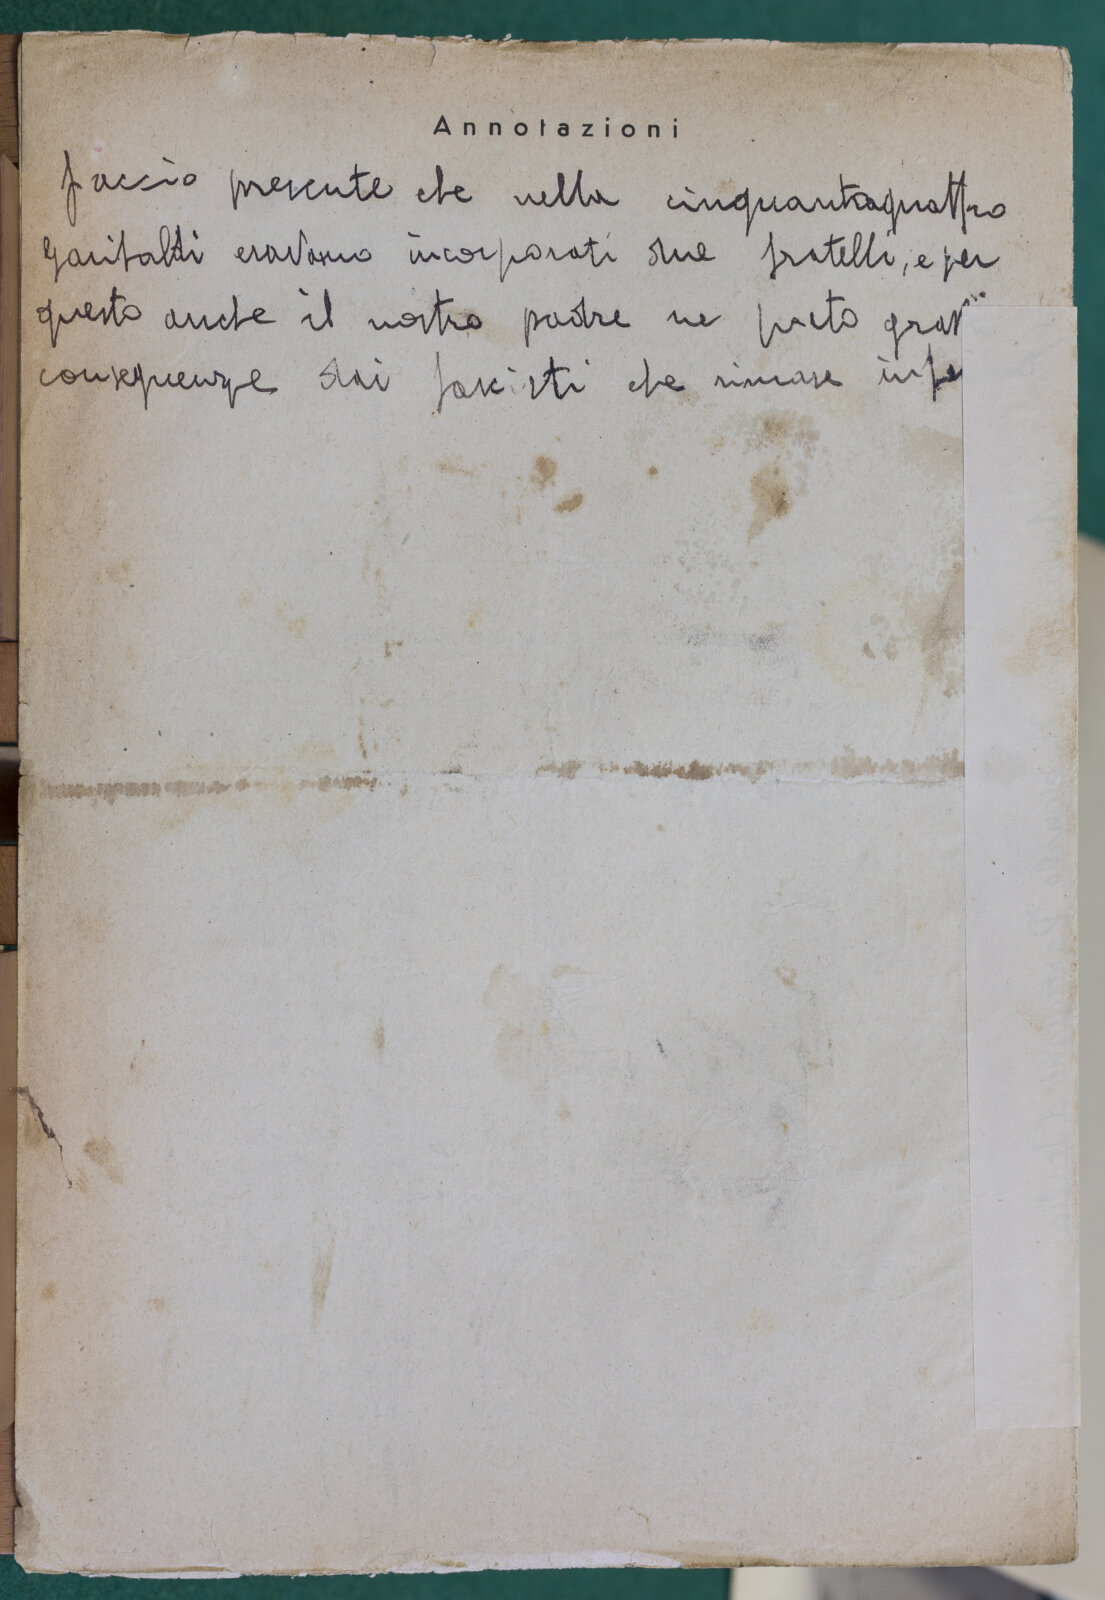 Annotazioni
faccio presente che nella cinquantaquattro
garibaldi eravamo incorporati due fratelli, e per
questo anche il nostro padre ne portò
conseguenze dai fascisti che rimase